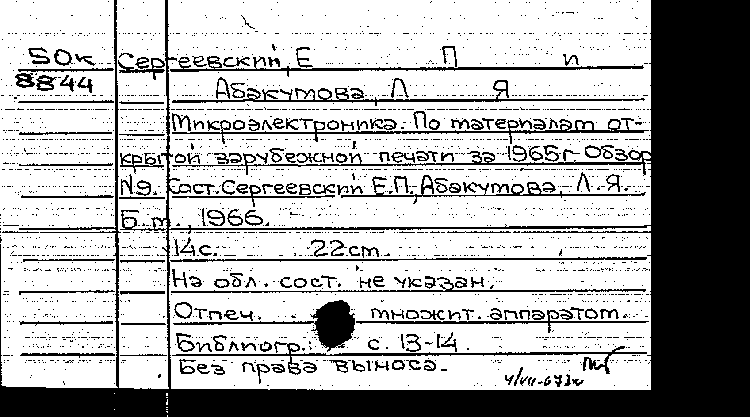 50к Сергеевский, Е П и
8844 Абакумова, Л Я
Микроэлектроника. По материалам от-
крытой зарубежной печати за 1965г. Обзор
№9. Сост. Сергеевский Е.П., Абакумова, Л.Я.
Б.м., 1966.
14с. 22см.
На обл. сост. не указан.
Отпеч. множит. аппаратом.
Библиогр.: с. 13-14.
Без права выноса.